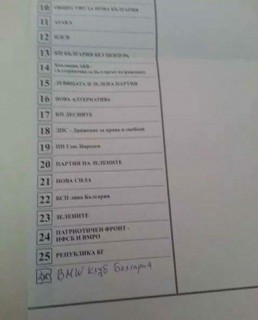 10
11 АТАКА
12 НДСВ
13 КП БЪЛГАРИЯ БЕЗ ЦЕНЗУРА
14 Коалиция АБВ -
15 ЛЕВИЦАТА И ЗЕЛЕНА ПАРТИЯ
16 НОВА АЛТЕРНАТИВА
17 КП ДЕСНИТЕ
18 ДПС - Движение за права и свободи
19 ПП Глас Народен
20 ПАРТИЯ НА ЗЕЛЕНИТЕ
21 НОВА СИЛА
22 БСП лява България
23 ЗЕЛЕНИТЕ
24 ПАТРИОТИЧЕН ФРОНТ -
НФСБ И ВМРО
25 РЕПУБЛИКА БГ
26 BMW Клуб България